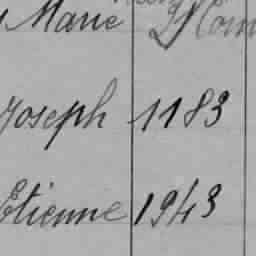 Marie
Joseph 1183
Etienne 1943